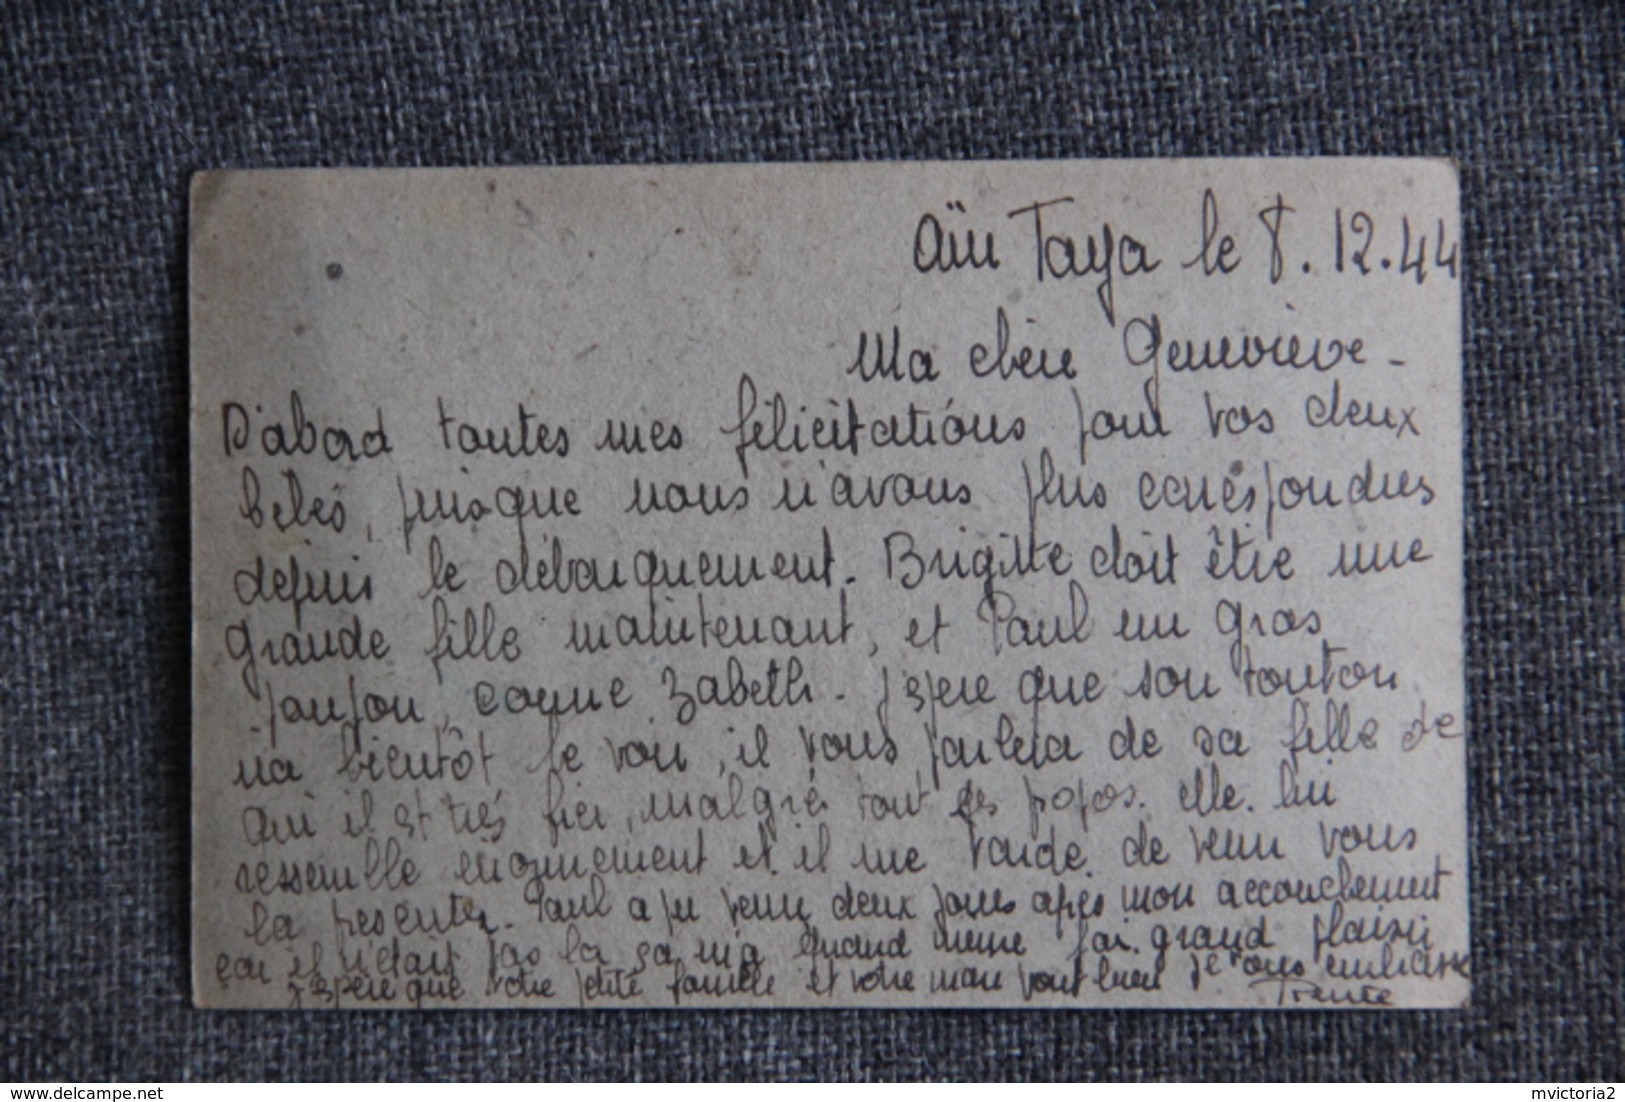 Aïn Taya le 8.12.44
Ma chère Geneviève -
D'abord toutes mes félicitations pour vos deux
bébés, puisque nous n'avons plus correspondues
dépuis le débarquement. Brigitte doit être une
grande fille maintenant, et Paul un gros
poupon, comme Zabeth - J'espere que son tonton
ira bientôt le voir, il vous parlera de sa fille de
qui il est très fier, malgré tout ses propos. elle lui
ressemble enormement et il me tarde de venir vous
la présenter. Paul a pu venir deux jours après mon accouchement
car il n'était pas la ça m'a quand meme fai grand plaisir
J'espère que votre petite famille et votre mari vont bien Je vous embrasse
mvictoria2
www.delcampe.net